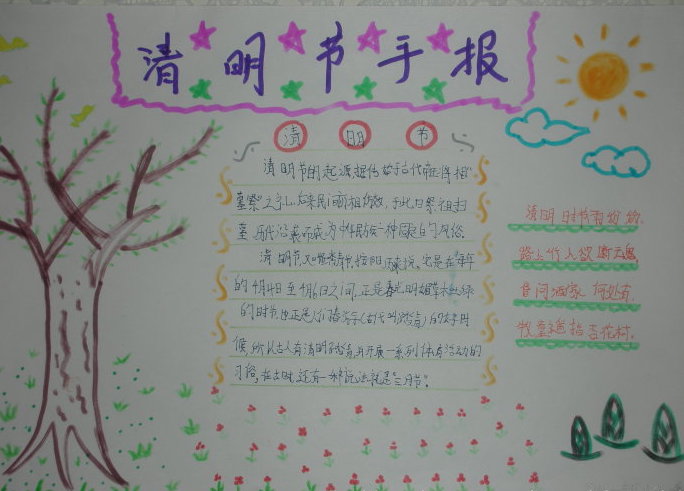 清明节手报
清明节
清明节的起源据传始于古代帝王将相
墓祭"之礼,后来民间亦相仿效,于此日祭祖扫
墓,历代沿袭而成为中华民族一种固定的风俗。
清明节,又叫踏青节,按阳历来说,它是在每年
的4月4日至4月6日之间,正是春光明媚草木吐绿
的时节,也正是人们踏青(古代叫踏青)的好时
候,所以古人有清明踏青,并开展一系列体育活动的
习俗,在古时,还有一种说法就是"三月节"。
清明时节雨纷纷,
路上行人欲断魂
借问酒家何处有,
牧童遥指杏花村.